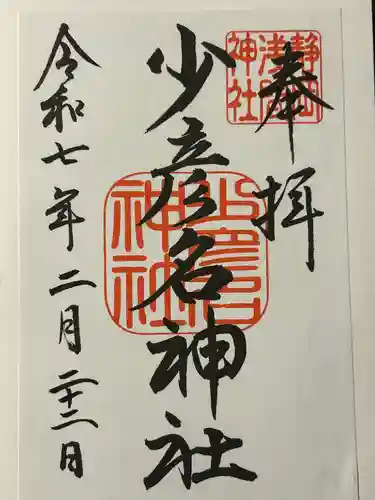 奉拝
静岡
浅間
神社
少彦名神社
少彦名
神社
令和七年二月二十二日